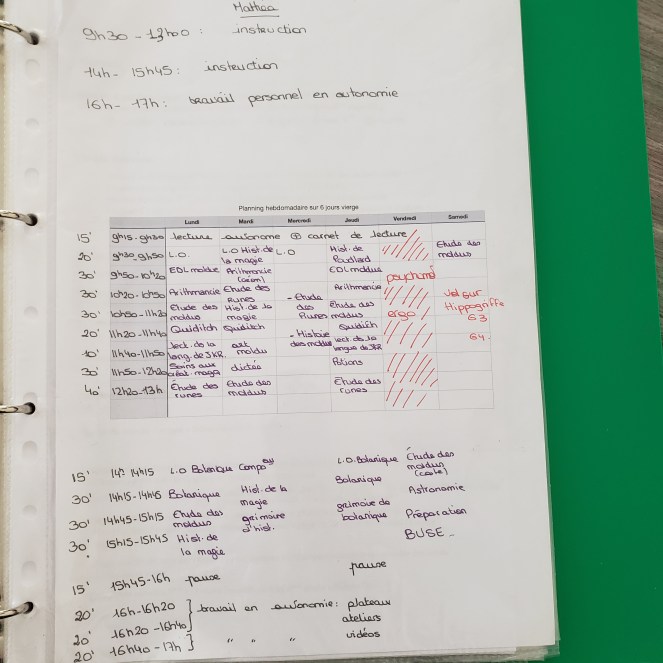 Mattea
9h30 - 13h00 : instruction
14h - 15h45 : instruction
16h - 17h : travail personnel en autonomie
Planning hebdomadaire sur 6 jours vierge
Lundi Mardi Mercredi Jeudi Vendredi Samedi
15' 9h15-9h30 lecture autonome ⊕ carnet de lecture
20' 9h30-9h50 L.O. L.O Hist. de la magie L.O Hist. de Poudlard Etude des moldus
30' 9h50-10h20 EDL moldue Arithmancie EDL moldue psychomo
30' 10h20-10h50 Arithmancie Etude des Runes Arithmancie
30' 10h50-11h20 Etude des moldus Hist. de la magie - Etude des Runes Etude des moldus ergo Vol sur Hippogriffe S3
20' 11h20-11h40 Quiditch Quiditch - Histoire des moldus Quiditch S4.
10' 11h40-11h50 lect. de la long. de JKR. art moldu lect. de la langue de JKR
30' 11h50-12h20 Soins aux créat. mag. dictée Potions
40' 12h20-13h Étude des runes Etude des moldus Etude des runes
15' 14h-14h15 L.O Botanique Compo L.O. Botanique Etude des moldus
30' 14h15-14h45 Botanique Hist. de la magie Botanique Astronomie
30' 14h45-15h15 Etude des moldus grimoire d'hist. grimoire de botanique Préparation
30' 15h15-15h45 Hist. de la magie BUSE
15' 15h45-16h pause pause
20' 16h-16h20 travail en autonomie : plateaux
20' 16h20-16h40 ateliers
20' 16h40-17h " " " vidéos